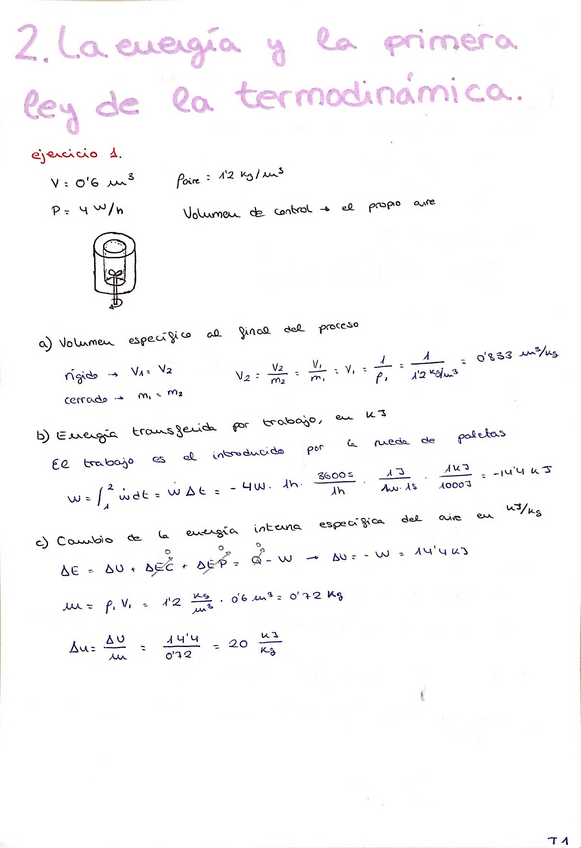 2. La energía y la primera
ley de la termodinámica.
ejercicio 1.
V = 0'6 m³ ρaire = 1'2 kg/m³
P = 4 W/h Volumen de control → el propio aire
a) Volumen específico al final del proceso
rígido → V₁ = V₂ V₂ = V₂/m₂ = V₁/m₁ = V₁ = 1/ρ₁ = 1/1'2 kg/m³ = 0'833 m³/kg
cerrado → m₁ = m₂
b) Energía transferida por trabajo, en KJ
El trabajo es el introducido por la rueda de paletas
W = ∫₁² ẇdt = ẇ Δt = -4W · 1h · 3600s/1h · 1J/1w·1s · 1KJ/1000J = -14'4 KJ
c) Cambio de la energía interna específica del aire en KJ/kg
ΔE = ΔU + ΔEC + ΔEP = Q - W → ΔU = -W = 14'4 KJ
m = ρ₁ V₁ = 1'2 kg/m³ · 0'6 m³ = 0'72 Kg
Δu = ΔU/m = 14'4/0'72 = 20 KJ/Kg
T1